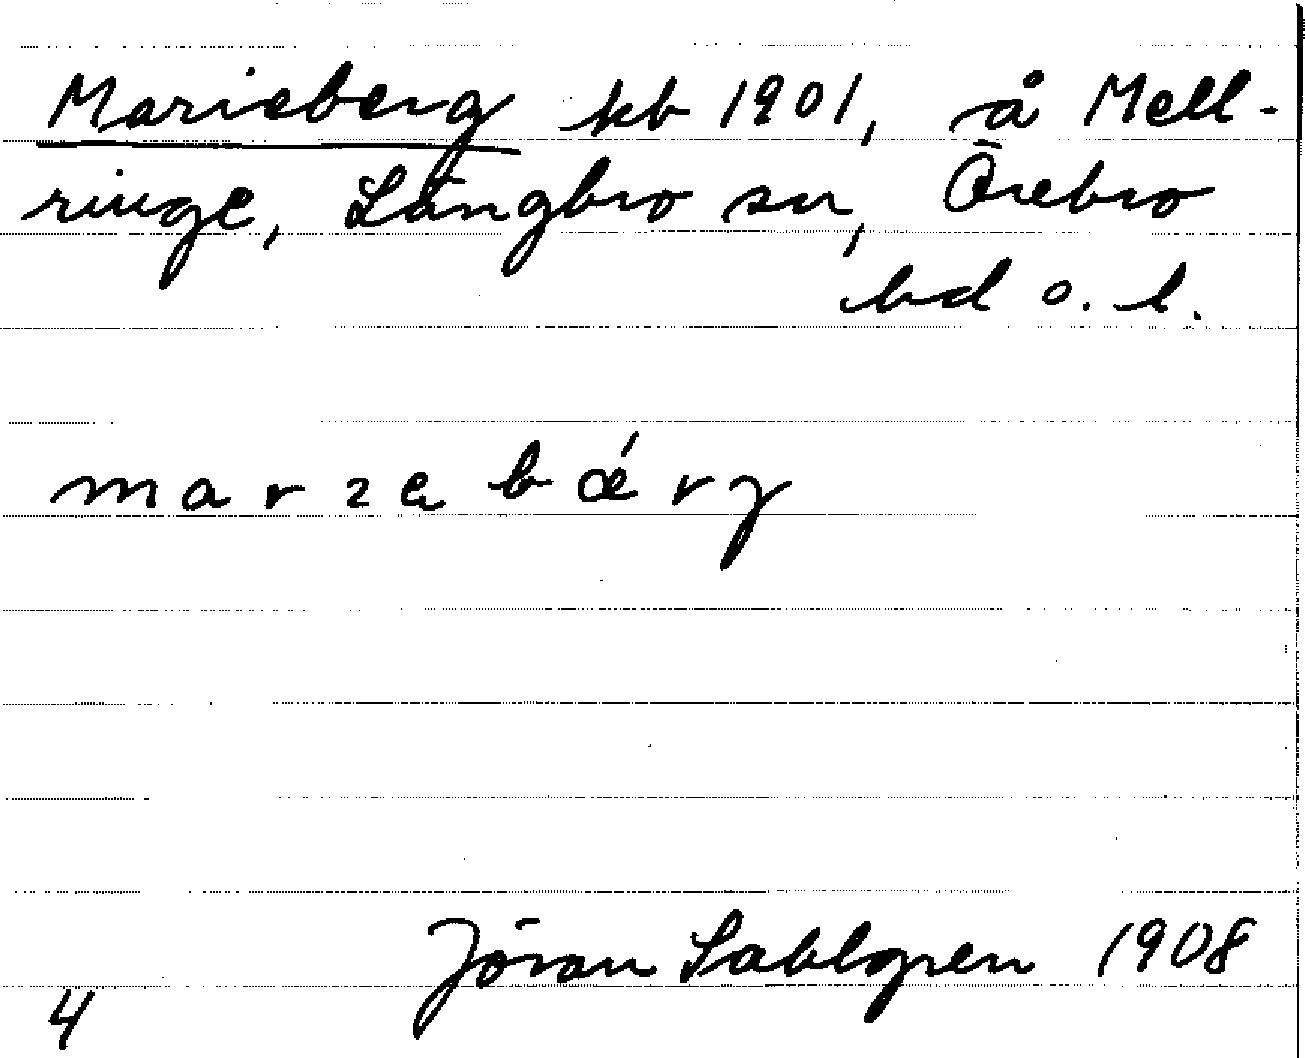 Marieberg kb 1901, å Mell-
ringe, Långbro sn, Örebro
hd o. l.
marzabǽrγ
Jöran Sahlgren 1908
4